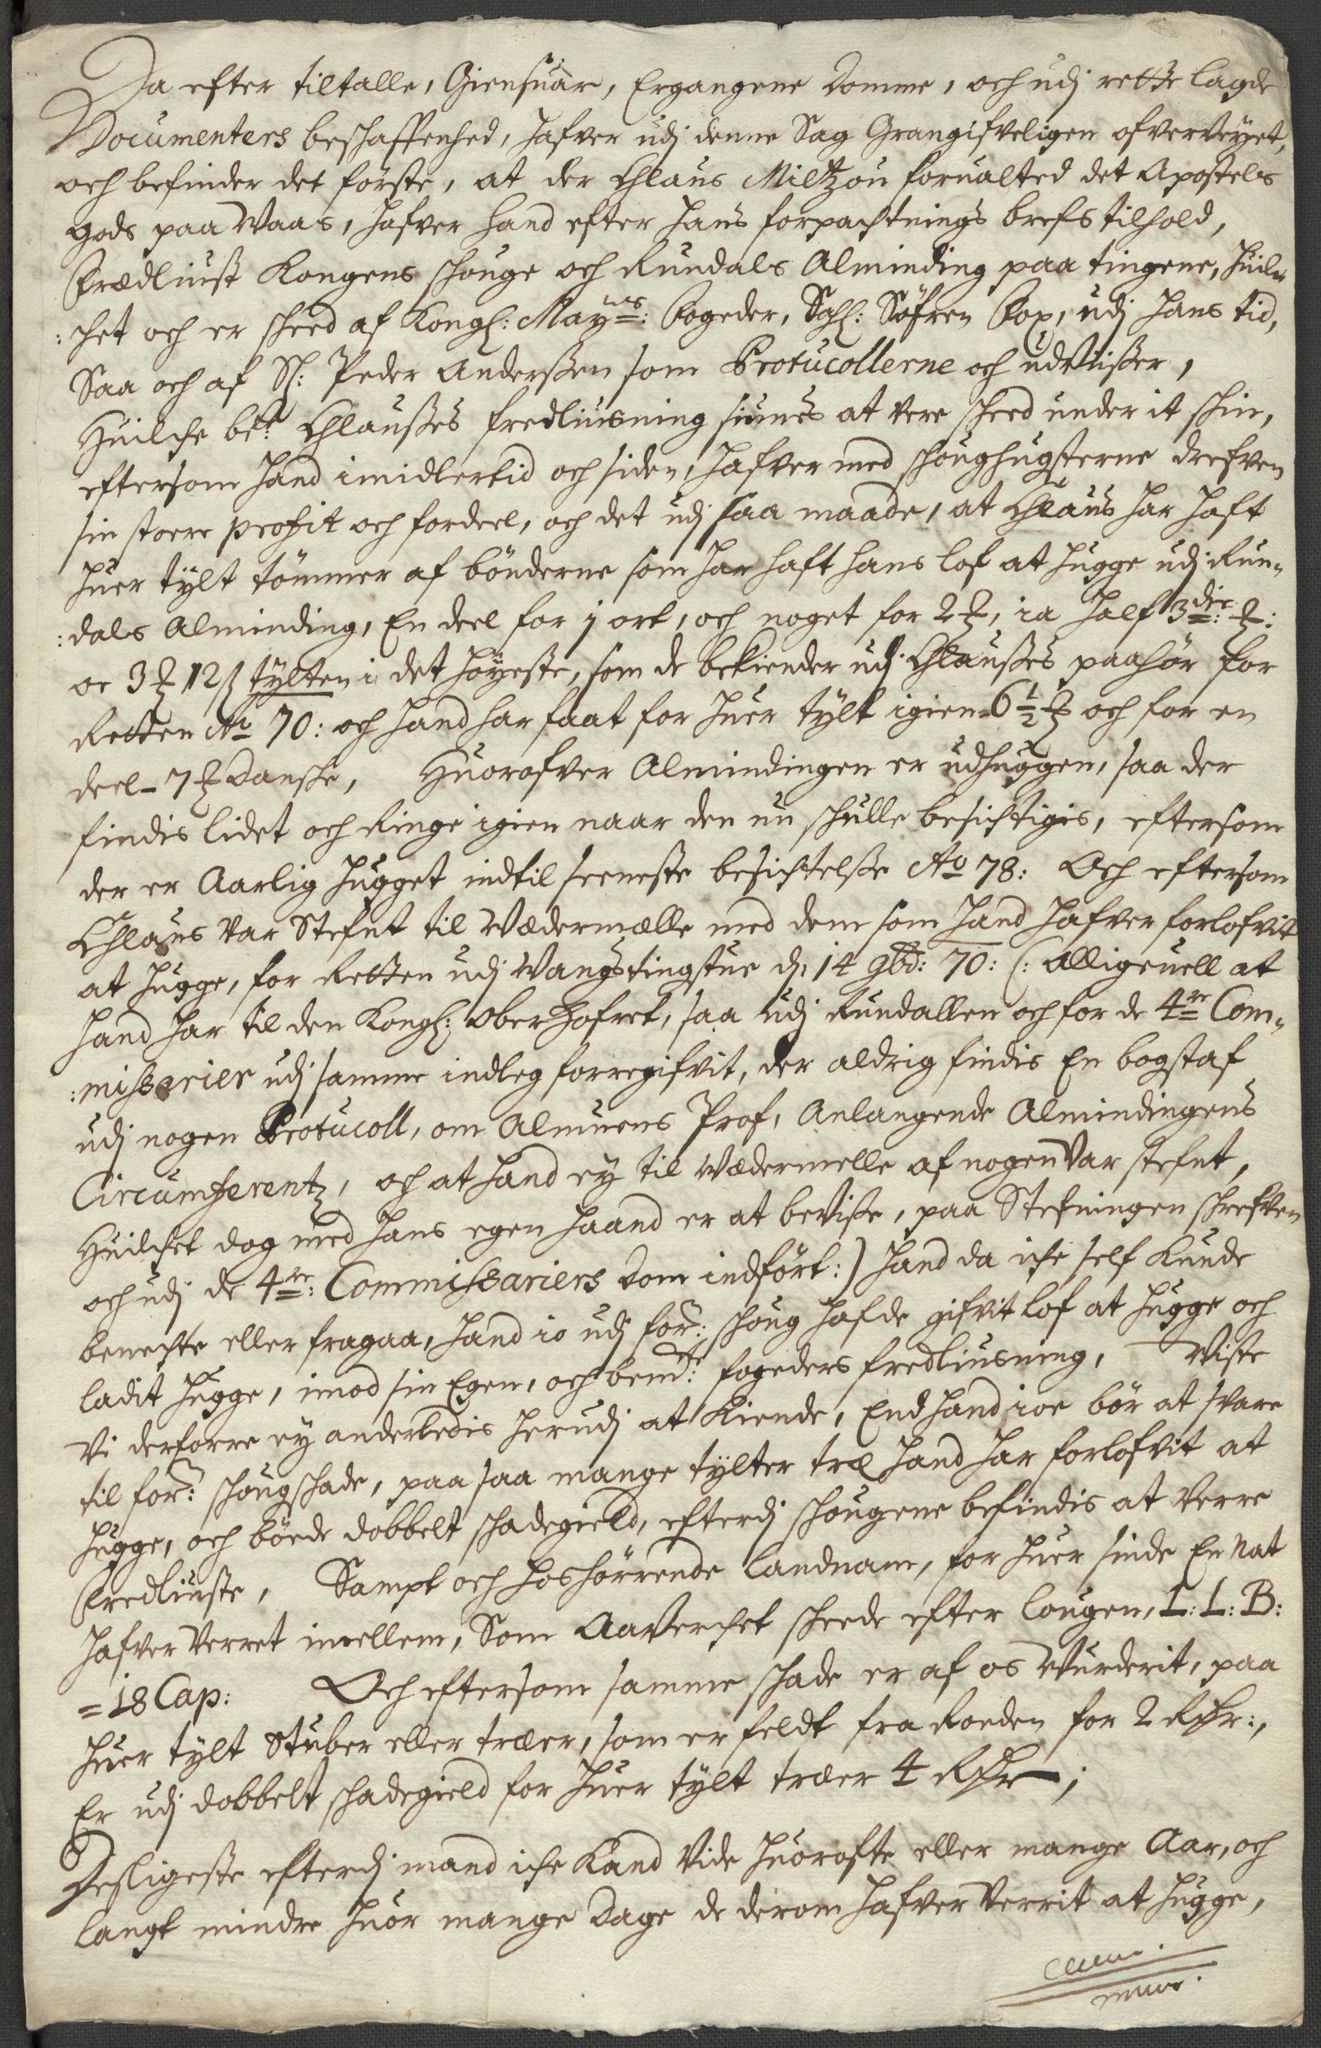 Da efter tiltalle, Giensuar, Ergangene Domme, och udj rette lagde
Documenters beschaffenhed, hafver udj denne Sag Grangifveligen ofverveyet,
och befinder det förste, at der Chlaus Miltzou forualted det Apostels
gods paa Waas, hafver hand efter hans forpachtnings brefs tilhold,
Frædliust Kongens schouge och Rundals Alminding paa tingene, huil¬
:chet och er scheed af Kongl: Mayts: Fogeder, Sahl: Söfren Fox, udj hans tid,
Saa och af Sl: Peder Anderssen som Protucollerne och udvisser,
Huilche bete Chlausses fredliusning siunes at vere scheed under it schin,
eftersom hand imidlertid och siden, hafver med schoughugsterne drefven
sin stoere profit och fordeel, och det udj saa maade, at Chlaus har haft
huer tylt tömmer af bönderne som har haft hans lof at hugge udj Run¬
:dals Alminding, En deel for 1 ort, och noget for 2 ℳ, ia half 3die: ℳ:
oc 3 ℳ 12 ß tylten i det höyeste, som de bekiender udj Chlausses paahör for
Retten Ao 70: och hand har faat for huer tylt igien 6½ ℳ och for en
deel 7 ℳ Danske, Huorofver Almindingen er udhuggen, saa der
findis lidet och Ringe igien naar den nu schulle besichtigis, eftersom
der er Aarlig hugget indtil seeneste besichtelsse Ao 78: Och eftersom
Chlaus var Stefnt til Wædermælle med dem som hand hafver forlofvit
at hugge, for Retten udj Wangstingstue d. 14 9bd: 70: (: alligeuell at
hand har til den Kongl: Ober Hofret, saa udj Rundallen och for de 4re Com¬
:missarier udj samme indleg forregifvit, der aldrig findis En bogstaf
udj nogen Protucoll, om Almuens Prof, Anlangende Almindingens
Circumferentz, och at hand ey til Wædermelle af nogen var stefnt,
Huilchet dog med hans egen haand er at bevisse, paa Stefningen schrefven
och udj de 4re: Commissariers Dom indfört:) hand da iche self kunde
benechte eller fragaa, hand io udj forne: schoug hafde gifvit lof at hugge och
ladit hugge, imod sin Egen, och bemte: fogeders fredliusning, Viste
Vi derforre ey anderledis herudj at Kiende, End hand ioe bör at svare
til forne: schougschade, paa saa mange tylter træ hand har forlofvit at
hugge, och böede dobbelt schadegield, efterdj schougene befindis at verre
Fredliuste, Sampt och hoshörrende landnam, for huer sinde En Nat
hafver verret imellem, Som Aaverchet scheede efter lougen, L: L: B:
=18 Cap: Och eftersom samme schade er af os Wurderit, paa
huer tylt Stuber eller træer, som er feldt fra Roeden for 2 Rdr:,
Er udj dobbelt schadegield for huer tylt træer 4 Rdr;
Desligeste efterdj mand iche Kand Vide huorofte eller mange Aar, och
langt mindre huor mange Dage de derom hafver verrit at hugge,